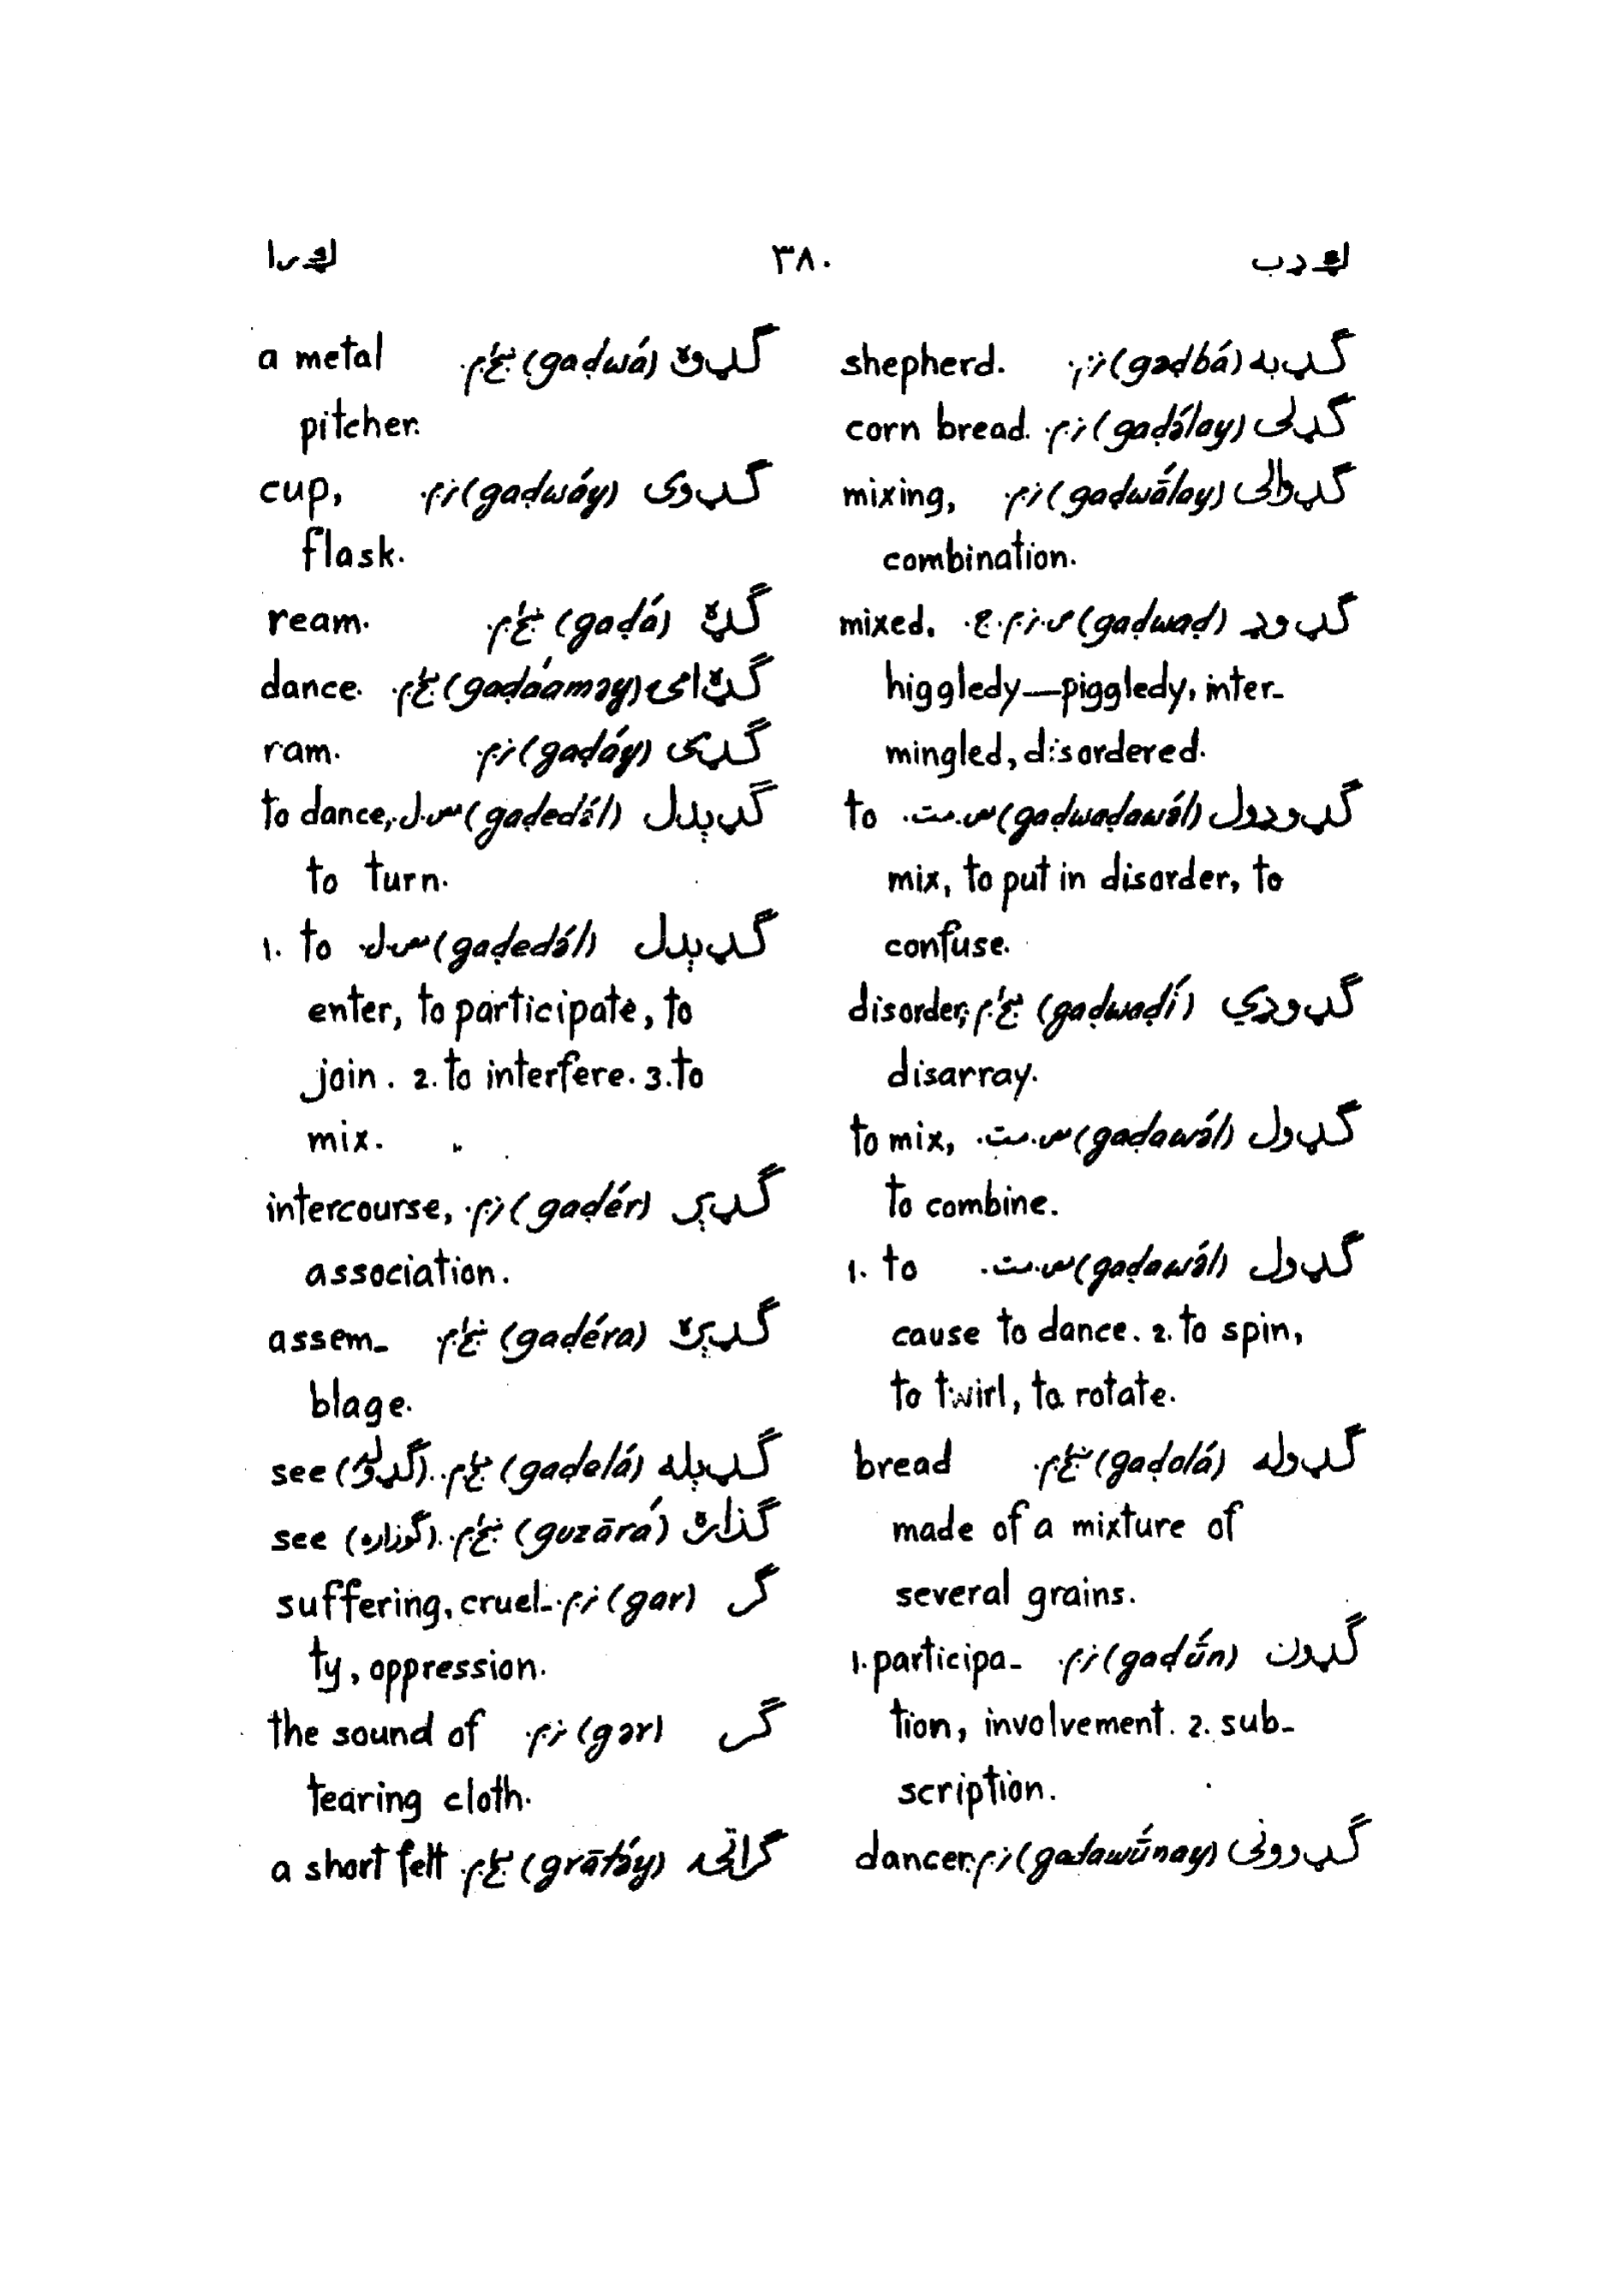 ګ ډ ب ۳۸۰ ګ ر ا
ګډبه (gəḍbá) shepherd.
ګډلی (gaḍə́lay) corn bread.
ګډوالی (gaḍwā́lay) mixing,
combination.
ګډوډ (gaḍwaḍ) mixed,
higgledy—piggledy, inter-
mingled, disordered.
ګډوډول (gaḍwaḍawə́l) to
mix, to put in disorder, to
confuse.
ګډوډي (gaḍwaḍí) disorder,
disarray.
ګډول (gaḍawə́l) to mix,
to combine.
ګډول (gaḍawə́l) 1. to
cause to dance. 2. to spin,
to twirl, to rotate.
ګډوله (gaḍolá) bread
made of a mixture of
several grains.
ګډون (gaḍū́n) 1. participa-
tion, involvement. 2. sub-
scription.
ګډوونی (gaḍawū́nay) dancer.
ګډوه (gaḍwá) a metal
pitcher.
ګډوی (gaḍwáy) cup,
flask.
ګډه (gaḍá) ream.
ګډه امۍ (gaḍáaməy) dance.
ګډی (gaḍáy) ram.
ګډېدل (gaḍedə́l) to dance,
to turn.
ګډېدل (gaḍedə́l) 1. to
enter, to participate, to
join. 2. to interfere. 3. to
mix.
ګډېر (gaḍér) intercourse,
association.
ګډېره (gaḍéra) assem-
blage.
ګډېله (gaḍelá) see (ګډوله)
ګذاره (guzārá) see (ګوزاره)
ګر (gar) suffering, cruel-
ty, oppression.
ګر (gər) the sound of
tearing cloth.
ګراتۍ (grātə́y) a short felt